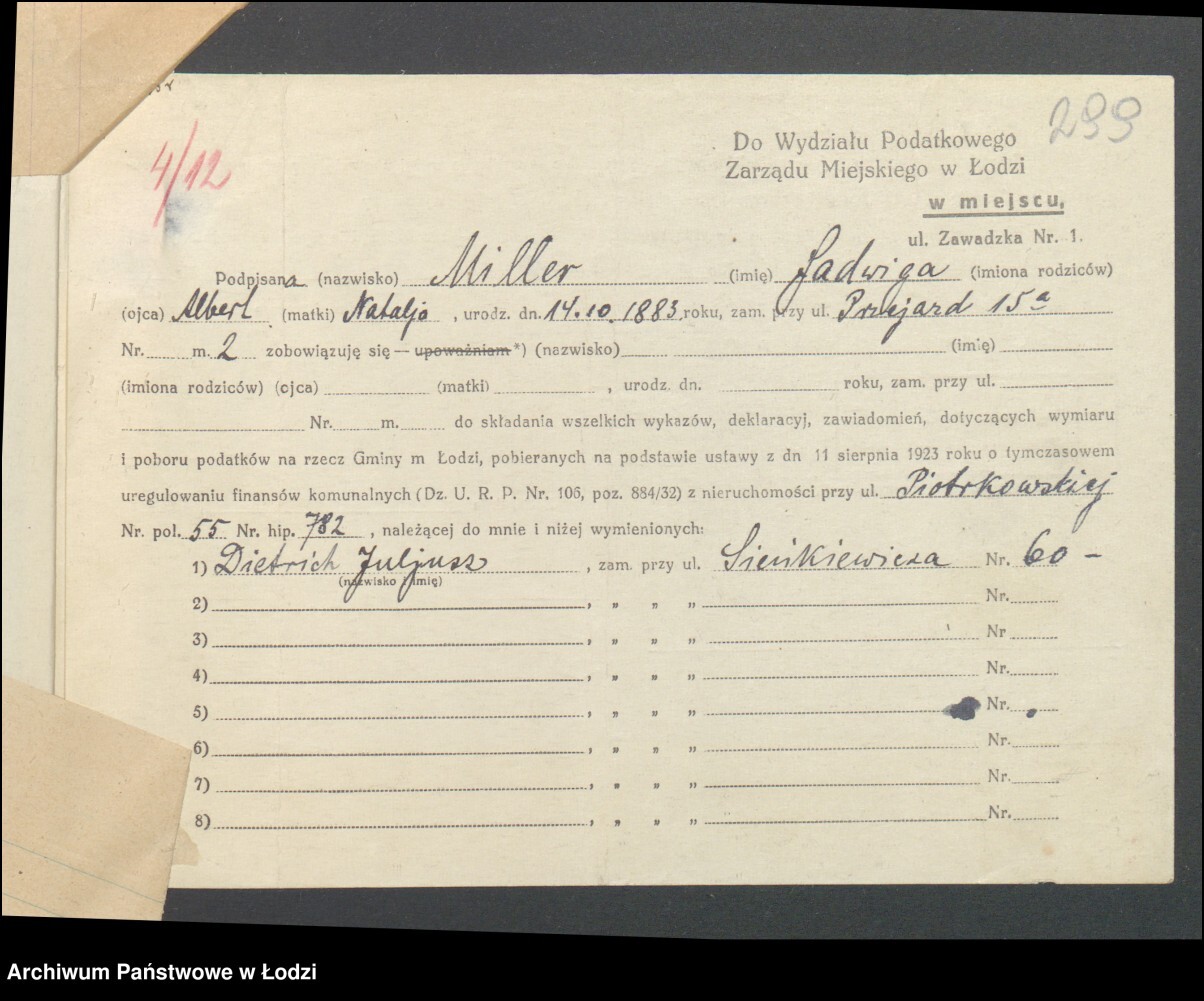 299
4/12
Do Wydziału Podatkowego
Zarządu Miejskiego w Łodzi
w miejscu,
ul. Zawadzka Nr. 1.
Podpisana (nazwisko) Miller (imię) Jadwiga (imiona rodziców)
(ojca) Albert (matki) Natalja, urodz. dn. 14.10.1883 roku, zam. przy ul. Przejazd 15a
Nr. m. 2 zobowiązuję się — upoważniam *) (nazwisko) (imię)
(imiona rodziców) (ojca) (matki) , urodz. dn. roku, zam. przy ul.
Nr. m. do składania wszelkich wykazów, deklaracyj, zawiadomień, dotyczących wymiaru
i poboru podatków na rzecz Gminy m Łodzi, pobieranych na podstawie ustawy z dn 11 sierpnia 1923 roku o tymczasowem
uregulowaniu finansów komunalnych (Dz. U. R. P. Nr. 106, poz. 884/32) z nieruchomości przy ul. Piotrkowskiej
Nr. pol. 55 Nr. hip. 782 , należącej do mnie i niżej wymienionych:
1) Dietrich Juljusz , zam. przy ul. Sieńkiewicza Nr. 60 –
(nazwisko i imię)
2) , „ „ „ Nr.
3) , „ „ „ Nr
4) , „ „ „ Nr.
5) , „ „ „ Nr.
6) , „ „ „ Nr.
7) , „ „ „ Nr.
8) , „ „ „ Nr.
Archiwum Państwowe w Łodzi